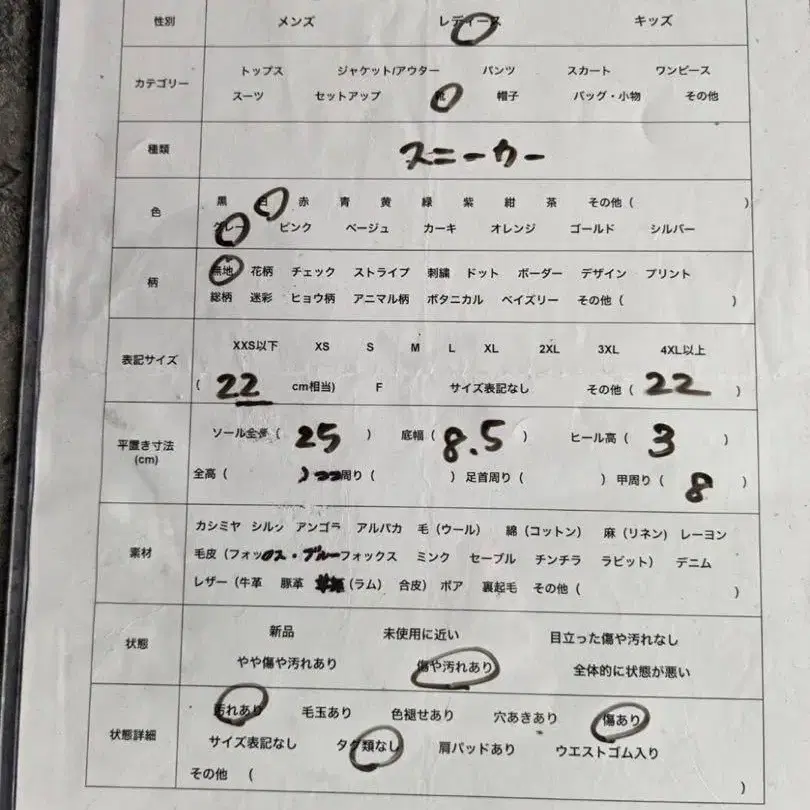 性別 メンズ レディース キッズ
カテゴリー トップス ジャケット/アウター パンツ スカート ワンピース
スーツ セットアップ 靴 帽子 バッグ・小物 その他
種類 スニーカー
色 黒 白 赤 青 黄 緑 紫 紺 茶 その他 ( )
グレー ピンク ベージュ カーキ オレンジ ゴールド シルバー
柄 無地 花柄 チェック ストライプ 刺繍 ドット ボーダー デザイン プリント
総柄 迷彩 ヒョウ柄 アニマル柄 ボタニカル ペイズリー その他 ( )
表記サイズ XXS以下 XS S M L XL 2XL 3XL 4XL以上
( 22 cm相当) F サイズ表記なし その他 ( 22 )
平置き寸法 (cm) ソール全長 ( 25 ) 底幅 ( 8.5 ) ヒール高 ( 3 )
全高 ( ) 周り ( ) 足首周り ( ) 甲周り ( 8 )
素材 カシミヤ シルク アンゴラ アルパカ 毛 (ウール) 綿 (コットン) 麻 (リネン) レーヨン
毛皮 (フォックス・ブルーフォックス ミンク セーブル チンチラ ラビット) デニム
レザー (牛革 豚革 (ラム) 合皮) ボア 裏起毛 その他 ( )
状態 新品 未使用に近い 目立った傷や汚れなし
やや傷や汚れあり 傷や汚れあり 全体的に状態が悪い
状態詳細 汚れあり 毛玉あり 色褪せあり 穴あきあり 傷あり
サイズ表記なし タグ類なし 肩パッドあり ウエストゴム入り
その他 ( )